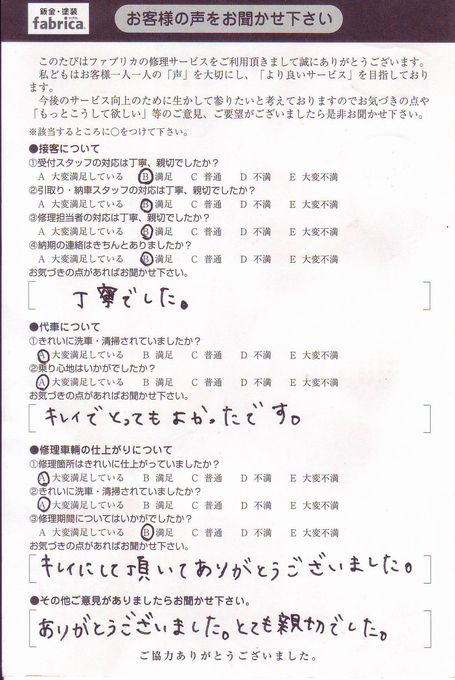 鈑金・塗装
fabrica.
お客様の声をお聞かせ下さい
このたびはファブリカの修理サービスをご利用頂きまして誠にありがとうございます。
私どもはお客様一人一人の「声」を大切にし、「より良いサービス」を目指しており
ます。
今後のサービス向上のために生かして参りたいと考えておりますのでお気づきの点や
「もっとこうして欲しい」等のご意見、ご要望がございましたら是非お聞かせ下さい。
※該当するところに○をつけて下さい。
●接客について
①受付スタッフの対応は丁寧、親切でしたか?
A 大変満足している B 満足 C 普通 D 不満 E 大変不満
②引取り・納車スタッフの対応は丁寧、親切でしたか?
A 大変満足している B 満足 C 普通 D 不満 E 大変不満
③修理担当者の対応は丁寧、親切でしたか?
A 大変満足している B 満足 C 普通 D 不満 E 大変不満
④納期の連絡はきちんとありましたか?
A 大変満足している B 満足 C 普通 D 不満 E 大変不満
お気づきの点があればお聞かせ下さい。
丁寧でした。
●代車について
①きれいに洗車・清掃されていましたか?
A 大変満足している B 満足 C 普通 D 不満 E 大変不満
②乗り心地はいかがでしたか?
A 大変満足している B 満足 C 普通 D 不満 E 大変不満
お気づきの点があればお聞かせ下さい。
キレイでとってもよかったです。
●修理車輌の仕上がりについて
①修理箇所はきれいに仕上がっていましたか?
A 大変満足している B 満足 C 普通 D 不満 E 大変不満
②きれいに洗車・清掃されていましたか?
A 大変満足している B 満足 C 普通 D 不満 E 大変不満
③修理期間についてはいかがでしたか?
A 大変満足している B 満足 C 普通 D 不満 E 大変不満
お気づきの点があればお聞かせ下さい。
キレイにして頂いてありがとうございました。
●その他ご意見がありましたらお聞かせ下さい。
ありがとうございました。とても親切でした。
ご協力ありがとうございました。